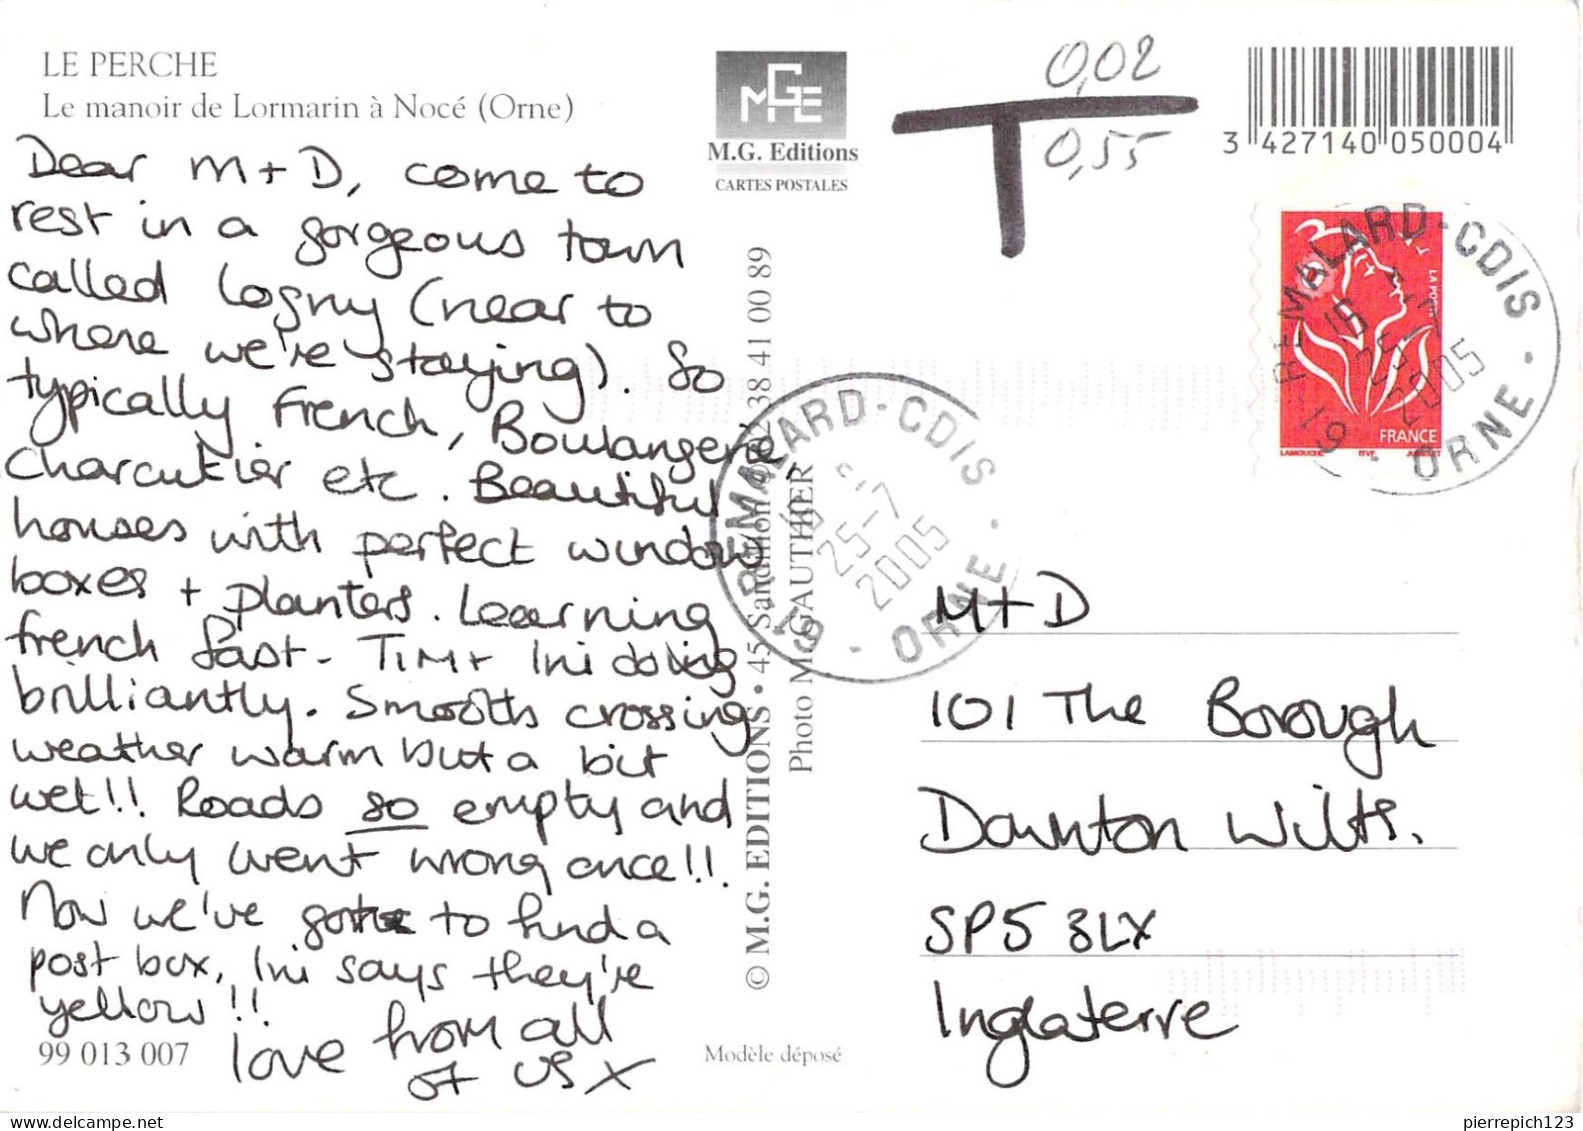 LE PERCHE
Le manoir de Lormarin à Nocé (Orne)
Dear M + D, come to
rest in a gorgeous town
called Logny (near to
where we're staying). So
typically French, Boulangerie
Charcutier etc. Beautiful
houses with perfect window
boxes + planters. Learning
french fast - Tim + Ini doing
brilliantly. Smooth crossing
weather warm but a bit
wet!! Roads so empty and
we only went wrong once!!
Now we've got to find a
post box, Ini says they're
yellow!!
love from all
of us x
99 013 007
MGE
M.G. Editions
CARTES POSTALES
© M.G. EDITIONS • 45 Sandillon 38 41 00 89
Photo M. GAUTHIER
Modèle déposé
T
0,02
0,55
3 427140 050004
LA POSTE
FRANCE
LAMOUCHE ITVF JUMELET
61 REMALARD-CDIS
25-7
2005
ORNE
61 REMALARD-CDIS
25-7
2005
ORNE
M+D
101 The Borough
Downton Wilts.
SP5 3LX
Inglaterre
pierrepich123